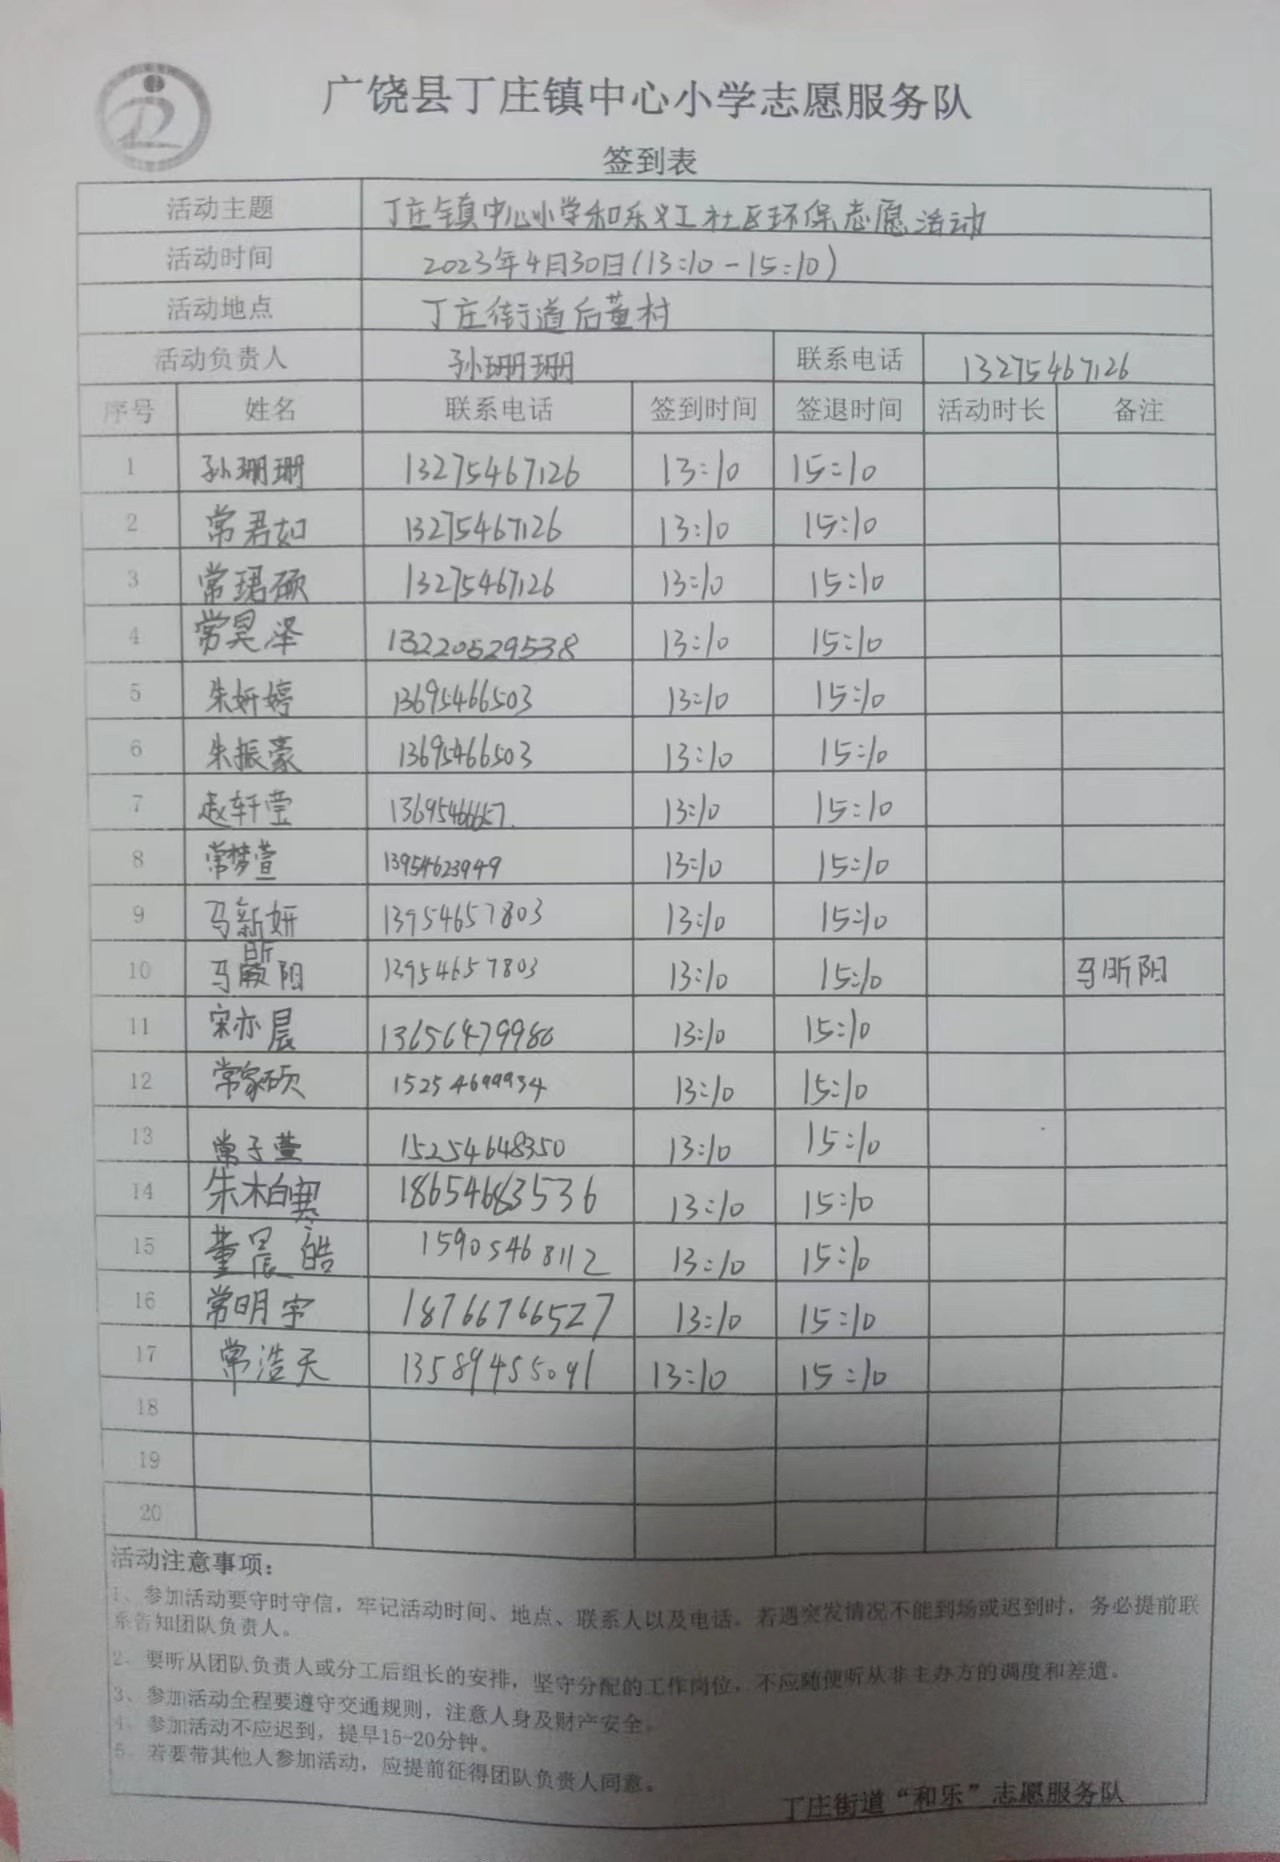 广饶县丁庄镇中心小学志愿服务队
签到表
活动主题 丁庄镇中心小学和乐义工社区环保志愿活动
活动时间 2023年4月30日(13:10-15:10)
活动地点 丁庄街道后董村
活动负责人 孙珊珊 联系电话 13275467126
序号 姓名 联系电话 签到时间 签退时间 活动时长 备注
1 孙珊珊 13275467126 13:10 15:10
2 常君如 13275467126 13:10 15:10
3 常珺硕 13275467126 13:10 15:10
4 常昊泽 13220529538 13:10 15:10
5 朱妍婷 13695466503 13:10 15:10
6 朱振豪 13695466503 13:10 15:10
7 赵轩莹 13:10 15:10
8 常梦萱 13954623949 13:10 15:10
9 马新妍 13954657803 13:10 15:10
10 马昕阳 13954657803 13:10 15:10 马昕阳
11 宋亦晨 13656479986 13:10 15:10
12 常家硕 15254699934 13:10 15:10
13 常子萱 15254648350 13:10 15:10
14 朱柏骞 18654683536 13:10 15:10
15 董晨皓 15905468112 13:10 15:10
16 常明宇 18766766527 13:10 15:10
17 常浩天 13589455091 13:10 15:10
18
19
20
活动注意事项：
1、参加活动要守时守信，牢记活动时间、地点、联系人以及电话。若遇突发情况不能到场或迟到时，务必提前联
系告知团队负责人。
2、要听从团队负责人或分工后组长的安排，坚守分配的工作岗位，不应随便听从非主办方的调度和差遣。
3、参加活动全程要遵守交通规则，注意人身及财产安全。
4、参加活动不应迟到，提早15-20分钟。
5、若要带其他人参加活动，应提前征得团队负责人同意。
丁庄街道“和乐”志愿服务队